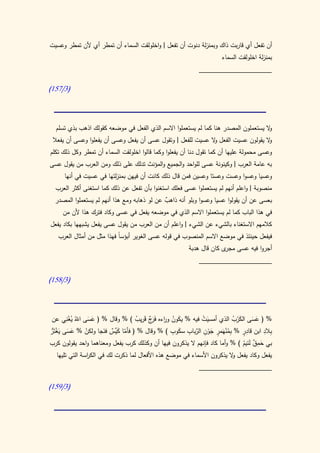 أن تفعل أي قاربت ذاك وبمنزلة دنوت أن تفعل | واخلولقت السماء أن تمطر أي لأن تمطر وعسيت
بمنزلة اخلولقت السماء
(157/3)
ولا يستعملون المصدر هنا كما لم يستعملوا الاسم الذي الفعل في موضعه كقولك اذهب بذي تسلم
ولا يقولون عسيت الفعل ولا عسيت للفعل | وتقول عسى أن يفعل وعسى أن يفعلوا وعسى أن يفعلا
وعسى محمولة عليها أن كما تقول دنا أن يفعلوا وكما قالوا اخلولقت السماء أن تمطر وكل ذلك تكلم
به عامة العرب | وكينونة عسى للواحد والجميع والمؤنث تدلك على ذلك ومن العرب من يقول عسى
وعسيا وعسوا وعست وعستا وعسين فمن قال ذلك كانت أن فيهن بمنزلتها في عسيت في أنها
منصوبة | واعلم أنهم لم يستعملوا عسى فعلك استغنوا بأن تفعل عن ذلك كما استغنى أكثر العرب
بعسى عن أن يقولوا عسيا وعسوا وبلو أنه ذاهبٌ عن لو ذهابه ومع هذا أنهم لم يستعملوا المصدر
في هذا الباب كما لم يستعملوا الاسم الذي في موضعه يفعل في عسى وكاد فترك هذا لأن من
كلامهم الاستغناء بالشيء عن الشيء | واعلم أن من العرب من يقول عسى يفعل يشبهها بكاد يفعل
فيفعل حينئذ في موضع الاسم المنصوب في قوله عسى الغوير أبؤساً فهذا مثل من أمثال العرب
أجروا فيه عسى مجرى كان قال هدبة
(158/3)
% ( عَسَى الكَرْبُ الذي أَمسيْتُ فيه % يكونُ وراءه فَرَجٌ قَرِيبُ ) % وقال % ( عَسَى اللهُ يُغْني عن
بِلادِ ابن قادرٍ % بمُنْهَمِرٍ جَوْنِ الرَّبابِ سَكوبِ ) % وقال % ( فأَمّا كَيِّسٌ فنجا ولكنْ % عَسَى يَغْتَرُّ
بي حَمِقٌ لئيمُ ) % وأما كاد فإنهم لا يذكرون فيها أن وكذلك كرب يفعل ومعناهما واحد يقولون كرب
يفعل وكاد يفعل ولا يذكرون الأسماء في موضع هذه الأفعال لما ذكرت لك في الكراسة التي تليها
(159/3)